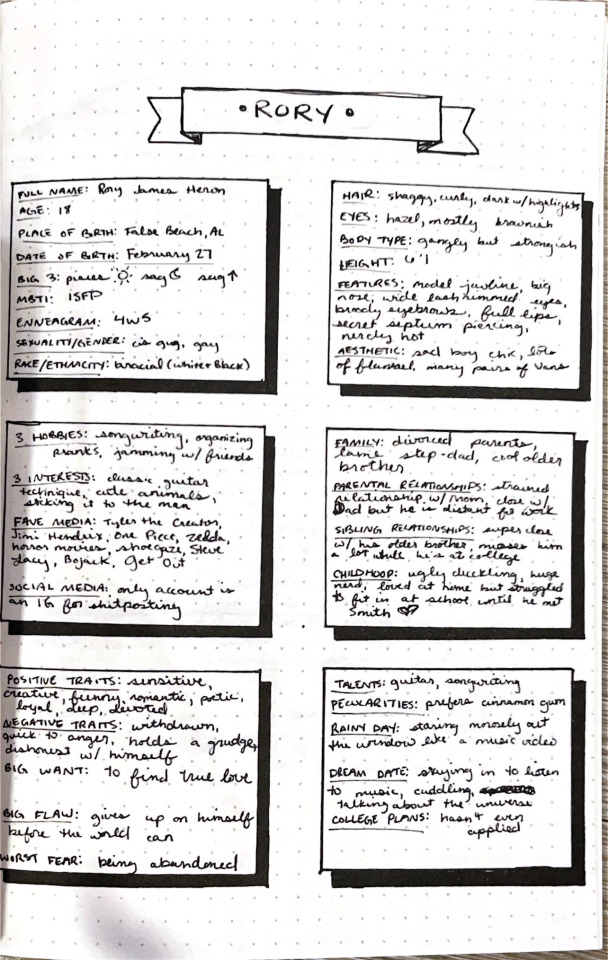 • RORY •
FULL NAME: Rory James Heron
AGE: 18
PLACE OF BIRTH: False Beach, AL
DATE OF BIRTH: February 27
BIG 3: pisces ☼ sag ☾ sag ↑
MBTI: ISFP
ENNEAGRAM: 4W5
SEXUALITY/GENDER: cis guy, gay
RACE/ETHNICITY: biracial (white + Black)
HAIR: shaggy, curly, dark w/ highlights
EYES: hazel, mostly brownish
BODY TYPE: gangly but strongish
HEIGHT: 6'1
FEATURES: model jawline, big
nose, wide lash rimmed eyes,
broody eyebrows, full lips,
secret septum piercing,
nerdy hot
AESTHETIC: sad boy chic, lots
of flannel, many pairs of Vans
3 HOBBIES: songwriting, organizing
pranks, jamming w/ friends
3 INTERESTS: classic guitar
technique, cute animals,
sticking it to the man
FAVE MEDIA: Tyler the Creator,
Jimi Hendrix, One Piece, Zelda,
horror movies, shoegaze, Steve
Lacy, Bojack, Get Out
SOCIAL MEDIA: only account is
an IG for shitposting
FAMILY: divorced parents,
lame step-dad, cool older
brother
PARENTAL RELATIONSHIPS: strained
relationship w/ Mom, close w/
Dad but he is distant for work
SIBLING RELATIONSHIPS: super close
w/ his older brother, misses him
a lot while he's at college
CHILDHOOD: ugly duckling, huge
nerd, loved at home but struggled
to fit in at school until he met
Smith ♡
POSITIVE TRAITS: sensitive,
creative, funny, romantic, poetic,
loyal, deep, devoted
NEGATIVE TRAITS: withdrawn,
quick to anger, holds a grudge,
dishonest w/ himself
BIG WANT: to find true love
BIG FLAW: gives up on himself
before the world can
WORST FEAR: being abandoned
TALENTS: guitar, songwriting
PECULIARITIES: prefers cinnamon gum
RAINY DAY: staring morosely out
the window like a music video
DREAM DATE: staying in to listen
to music, cuddling,
talking about the universe
COLLEGE PLANS: hasn't even
applied